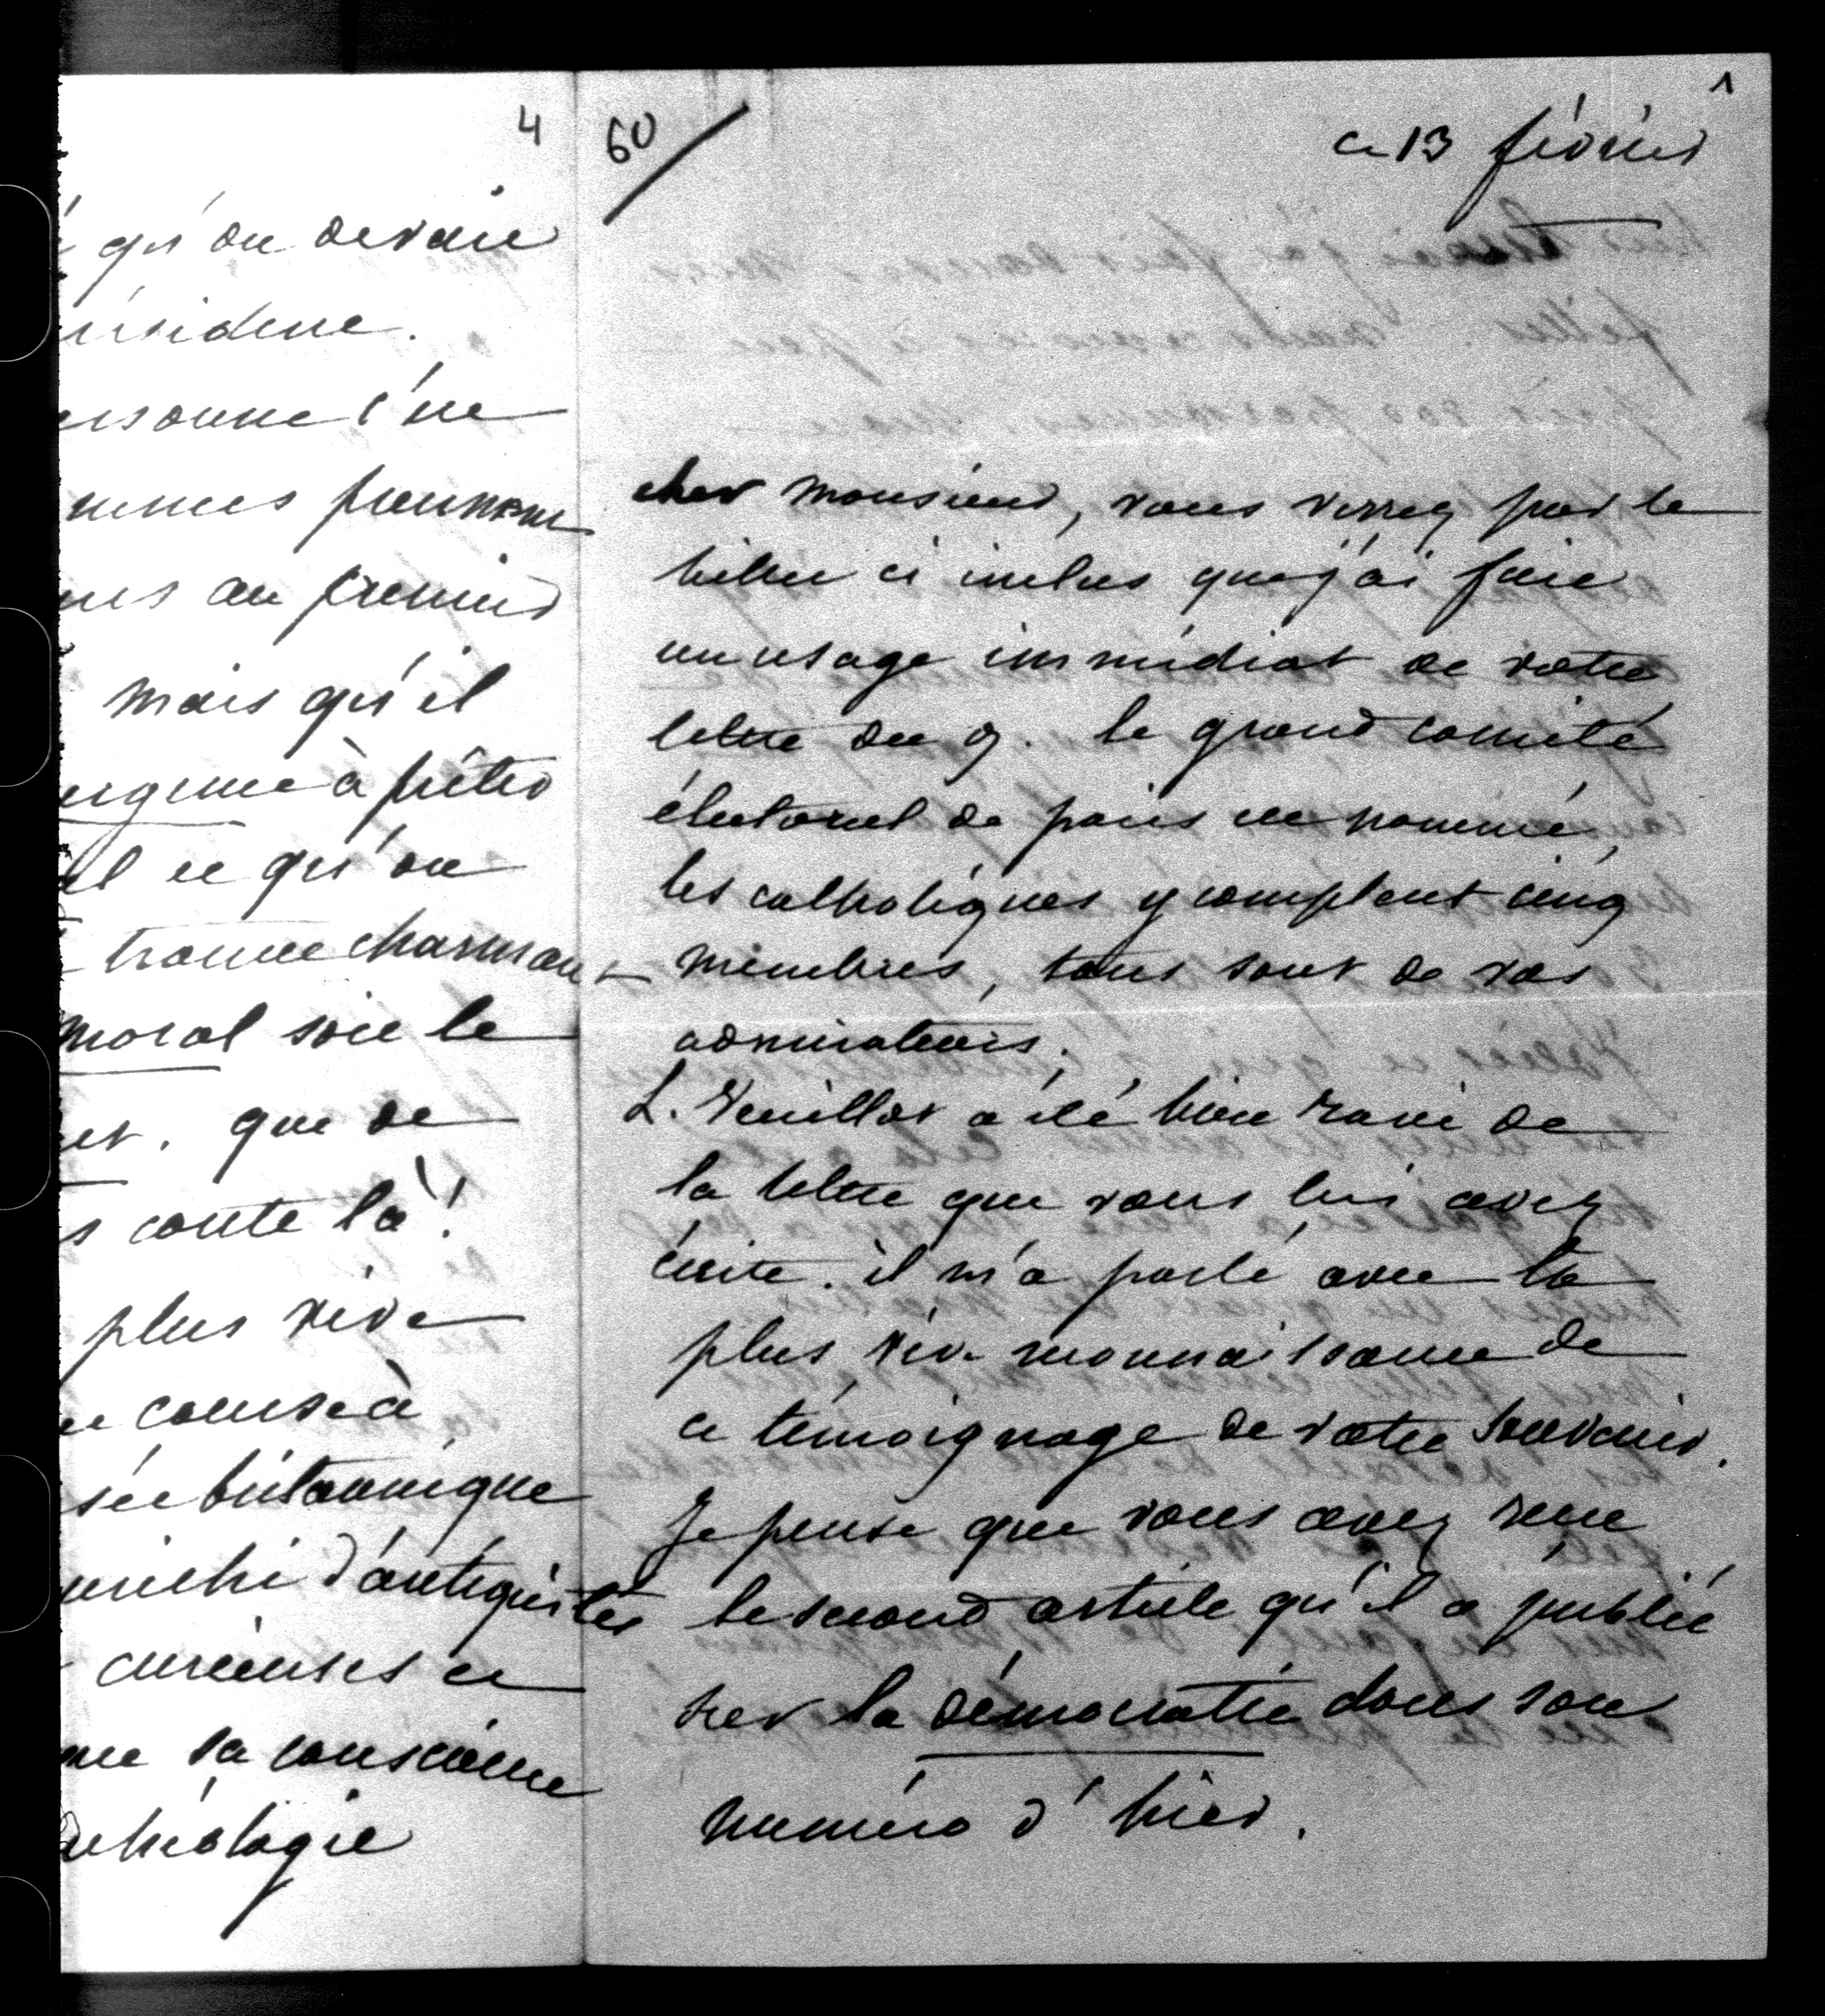 4
qu'on devait
résidence.
personne l'ne
prennent
au premier
mais qu'il
à prêter
ce qu'on
trouve charmant
moral soit le
que de
conte là !
plus vive
course à
britannique
enrichi d'antiquités
curieuses et
sa conscience
archéologie
60
1
ce 13 février
cher monsieur, vous verrez par le
billet ci inclus que j'ai fait
un usage immédiat de votre
lettre du 9. le grand comité
électoral de paris est nommé,
les catholiques y comptent cinq
membres, tous sont de vos
admirateurs.
L. Veuillot a été bien ravi de
la lettre que vous lui avez
écrite. il m'a parlé avec la
plus vive reconnaissance de
ce témoignage de votre souvenir.
Je pense que vous avez reçu
le second article qu'il a publié
sur la démocratie dans son
numéro d'hier.